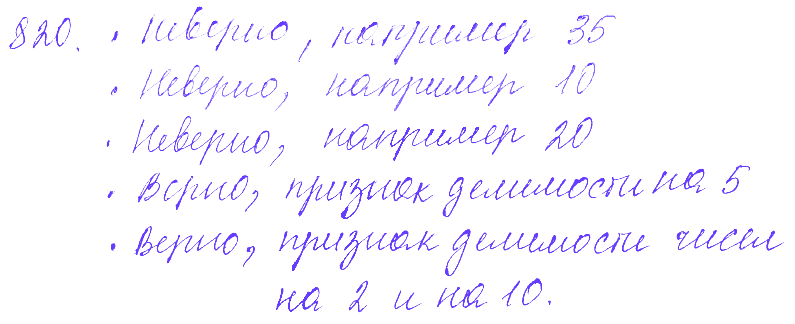 820. • Неверно, например 35
• Неверно, например 10
• Неверно, например 20
• Верно, признак делимости на 5
• Верно, признак делимости чисел
на 2 и на 10.